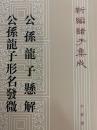 新編諸子集成
公孫龍子懸解
公孫龍子形名發微